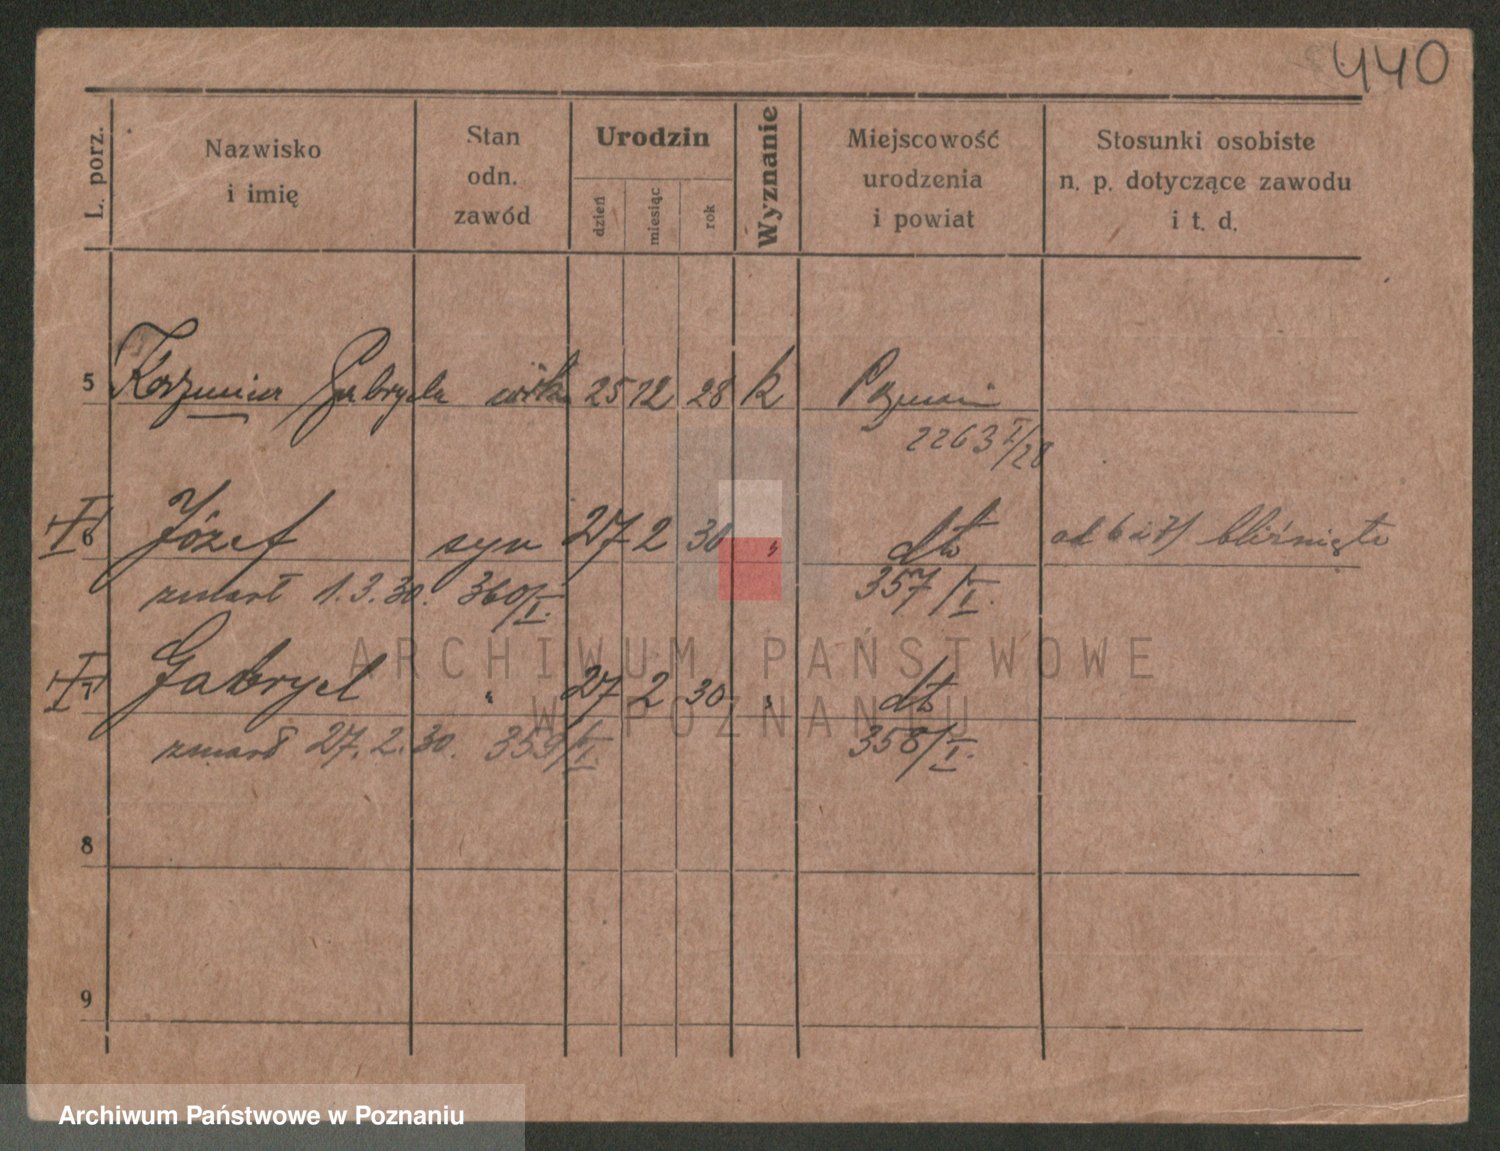 440
L. porz.
Nazwisko
i imię
Stan
odn.
zawód
Urodzin
dzień
miesiąc
rok
Wyznanie
Miejscowość
urodzenia
i powiat
Stosunki osobiste
n. p. dotyczące zawodu
i t. d.
5 Gabryela 25 12 28 k Poznań
2263 I/28
6 Józef syn 27 2 30 " dto od 6 i 7) bliźnięta
zmarł 1.3.30. 360/I. 357/I.
7 Gabryel " 27 2 30 " dto
zmarł 27.2.30. 359/I. 358/I.
8
9
ARCHIWUM PAŃSTWOWE
W POZNANIU
Archiwum Państwowe w Poznaniu